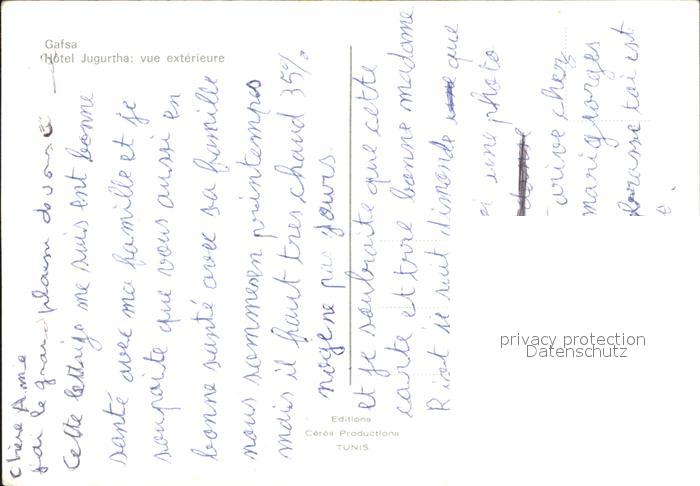 Gafsa
Hôtel Jugurtha: vue extérieure
chère Amie
j'ai le grand plaisir de vous
Cette lettr je me suis est bonne
santé avec ma famille et je
soupoite que vous aussi en
bonne santé avec sa famille
nous sommes en printemps
mais il faut très chaud 35%
pas jours.
et je souhraite que cette
carte et trre bonne madame
Riot je suit dimende que
si une photo
arive chez
marigeorges
toi est
Editions
Cérès Productions
TUNIS
privacy protection
Datenschutz